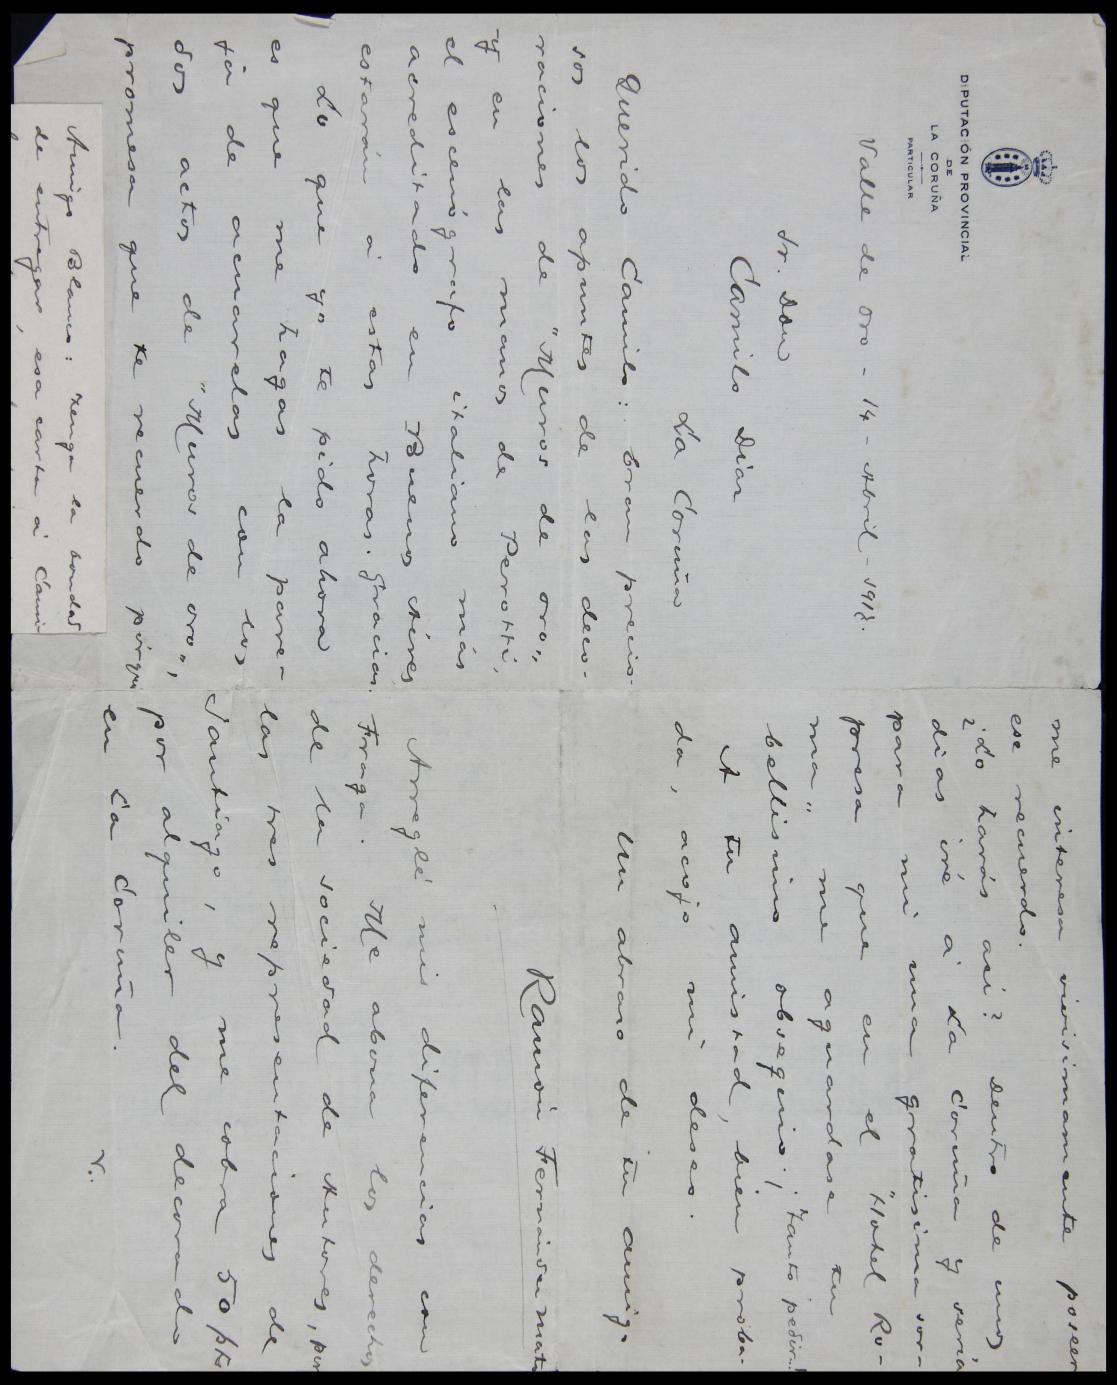 DIPUTACIÓN PROVINCIAL
DE
LA CORUÑA
PARTICULAR
Valle de Oro - 14 - Abril - 1918.
Sr. Don
Camilo Díaz
La Coruña
Querido Camilo: Eran precio-
sos los apuntes de las deco-
raciones de "Muros de oro",
y en las manos de Perotti,
el escenógrafo italiano más
acreditado en Buenos Aires
estarán á estas horas. Gracias.
Lo que yo te pido ahora
es que me hagas la pare-
ja de acuarelas con los
dos actos de "Muros de oro",
promesa que te recuerdo pórque
Amigo Blanco: Tenga la bondad
de entregar, esa carta á Cami
me interesa vivisimamente poseer
ese recuerdo.
¿Lo harás así? Dentro de unos
dias iré á La Coruña y sería
para mí una gratisima sor-
presa que en el "Hotel Ro-
ma" me aguardase tu
bellisimo obsequio; ¡Tanto pedir..!
A tu amistad, bien proba-
da, acojo mi deseo.
Un abrazo de tu amigo
Ramón Fernández Mato
Arreglé mis diferencias con
Fraga. Me abona los derechos
de la sociedad de Autores, por
las tres representaciones de
Santiago, y me cobra 50 pts
por alquiler del decorado
en La Coruña.
V.